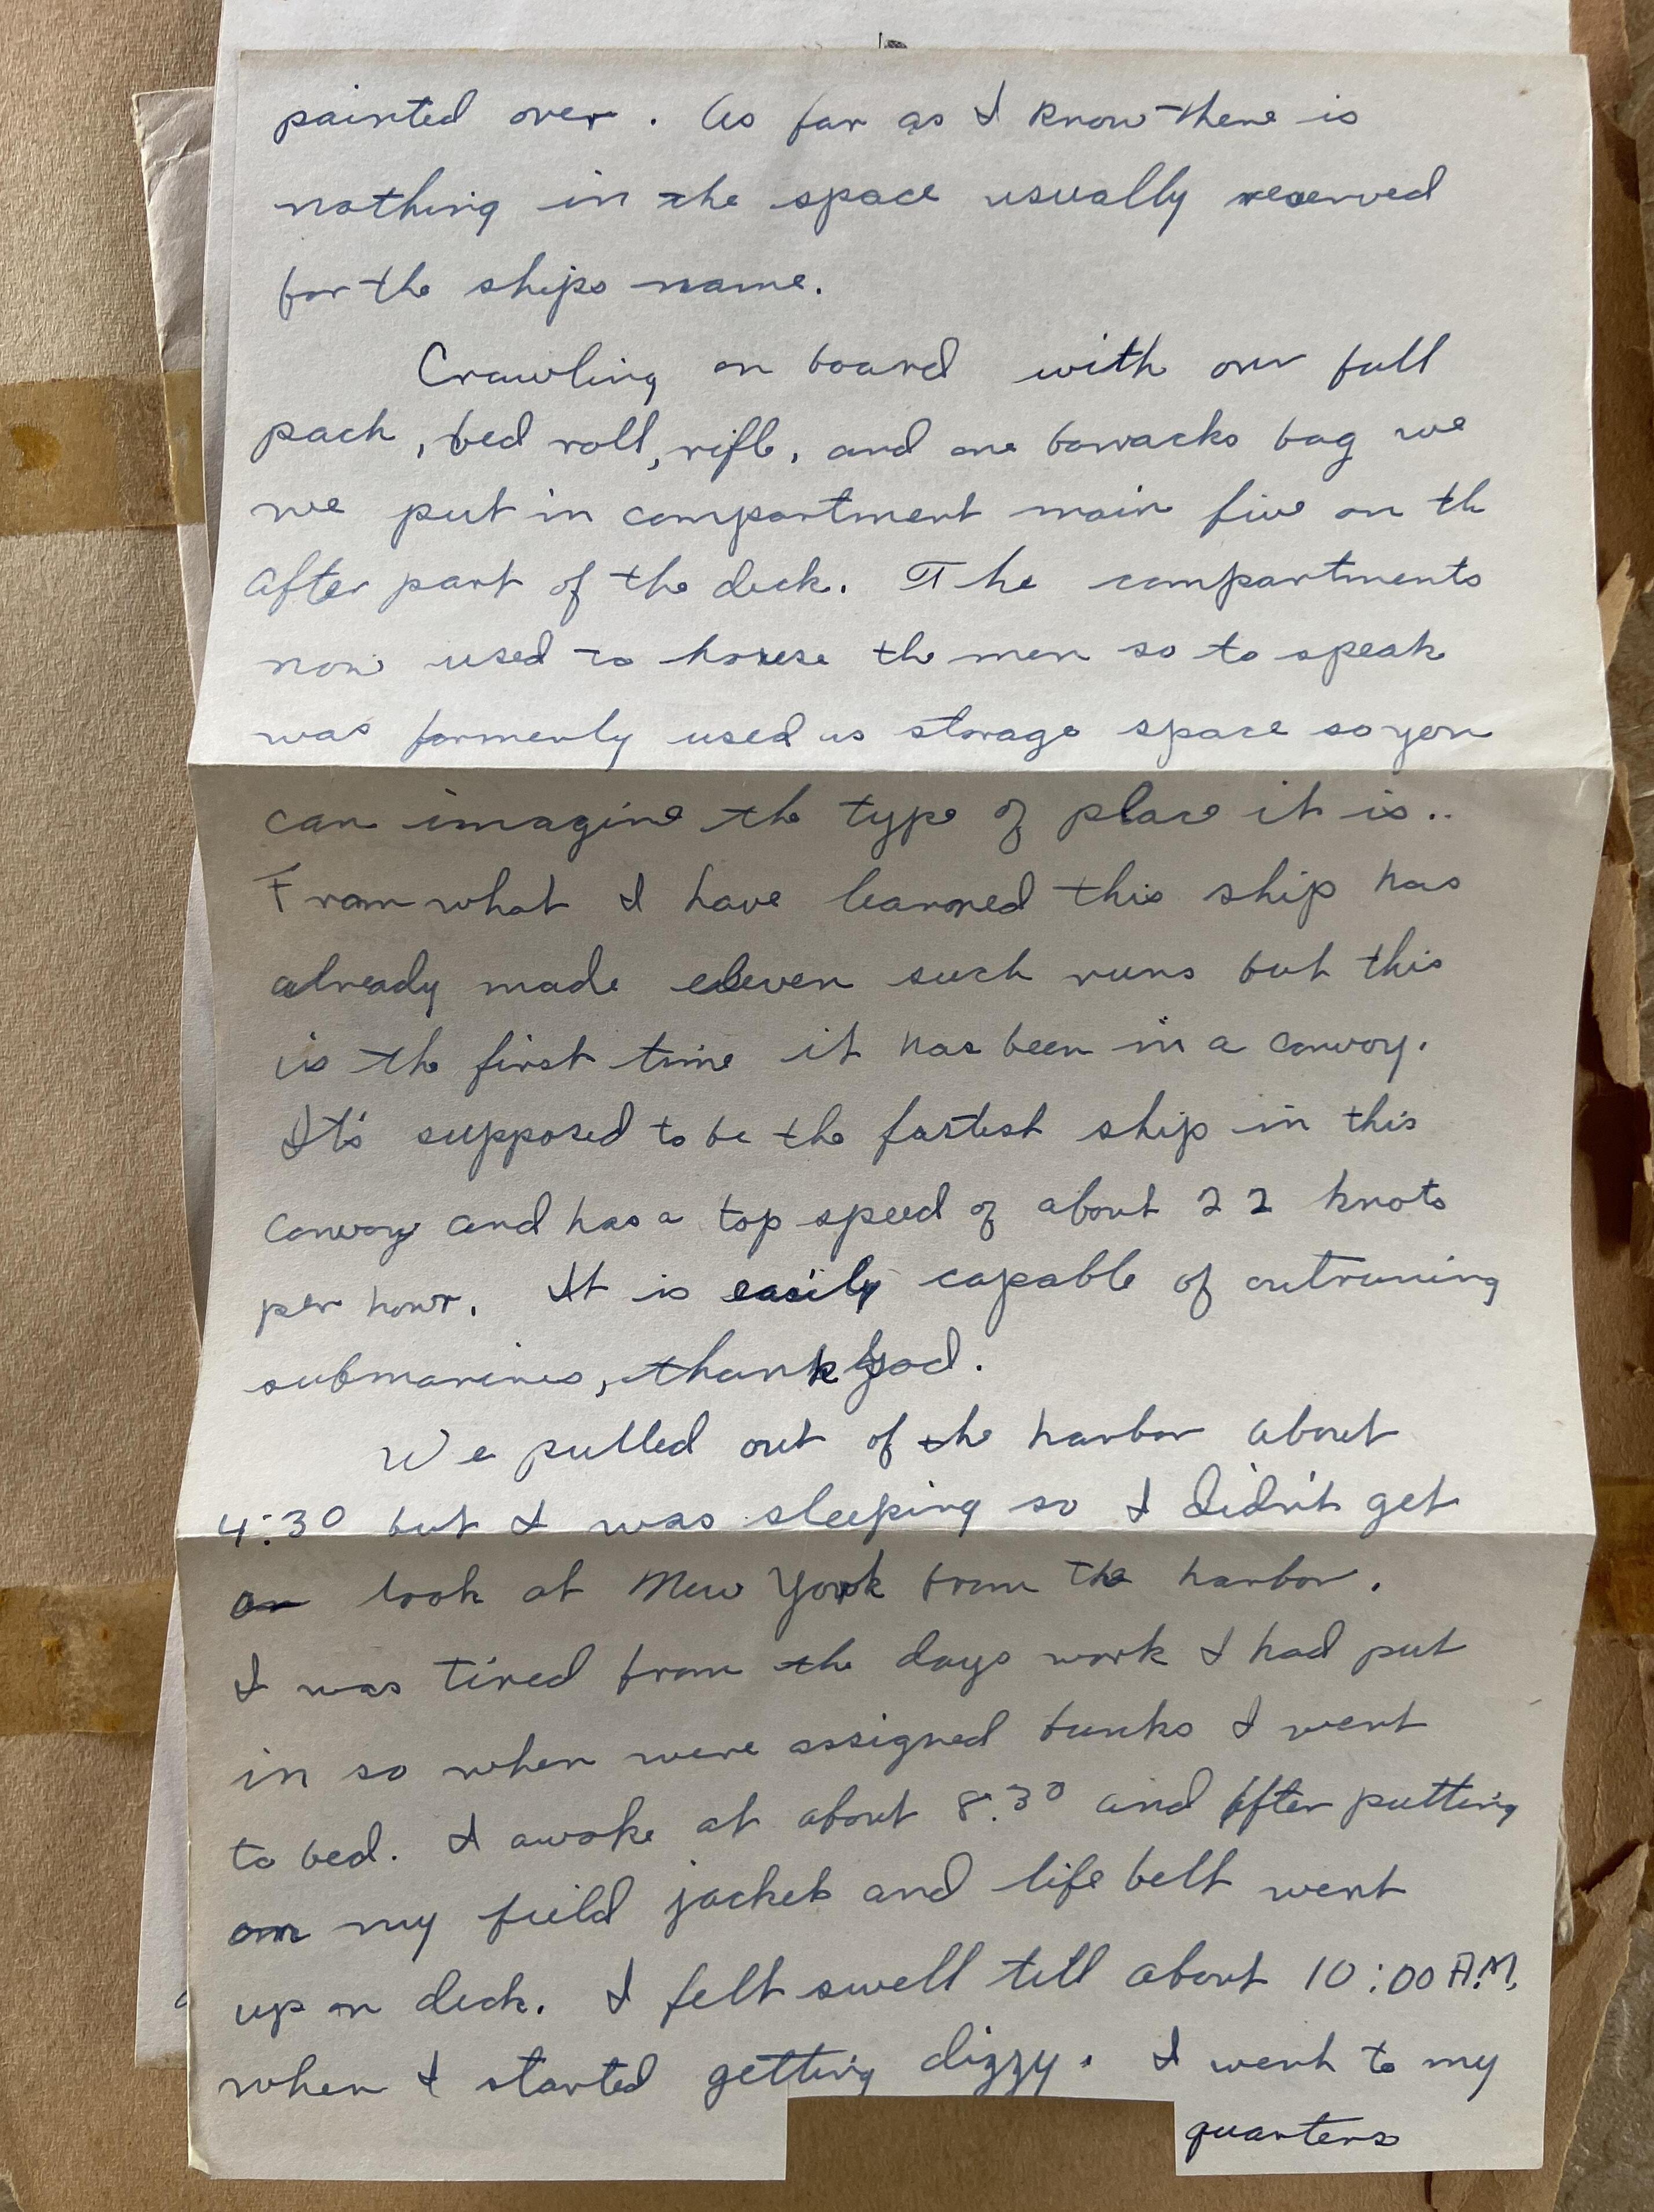 painted over. As far as I know there is
nothing in the space usually reserved
for the ships name.
Crawling on board with our full
pack, bed roll, rifle, and one barracks bag we
we put in compartment main five on th
after part of the deck. The compartments
now used to house the men so to speak
was formerly used as storage space so you
can imagine the type of place it is..
From what I have learned this ship has
already made eleven such runs but this
is the first time it has been in a convoy.
It's supposed to be the fastest ship in this
convoy and has a top speed of about 22 knots
per hour. It is easily capable of outruning
submarines, thank God.
We pulled out of the harbor about
4:30 but I was sleeping so I didn't get
a look at New York from the harbor.
I was tired from the days work I had put
in so when were assigned bunks I went
to bed. I awoke at about 8:30 and after putting
on my field jacket and life belt went
up on deck. I felt swell till about 10:00 A.M.
when I started getting dizzy. I went to my
quarters